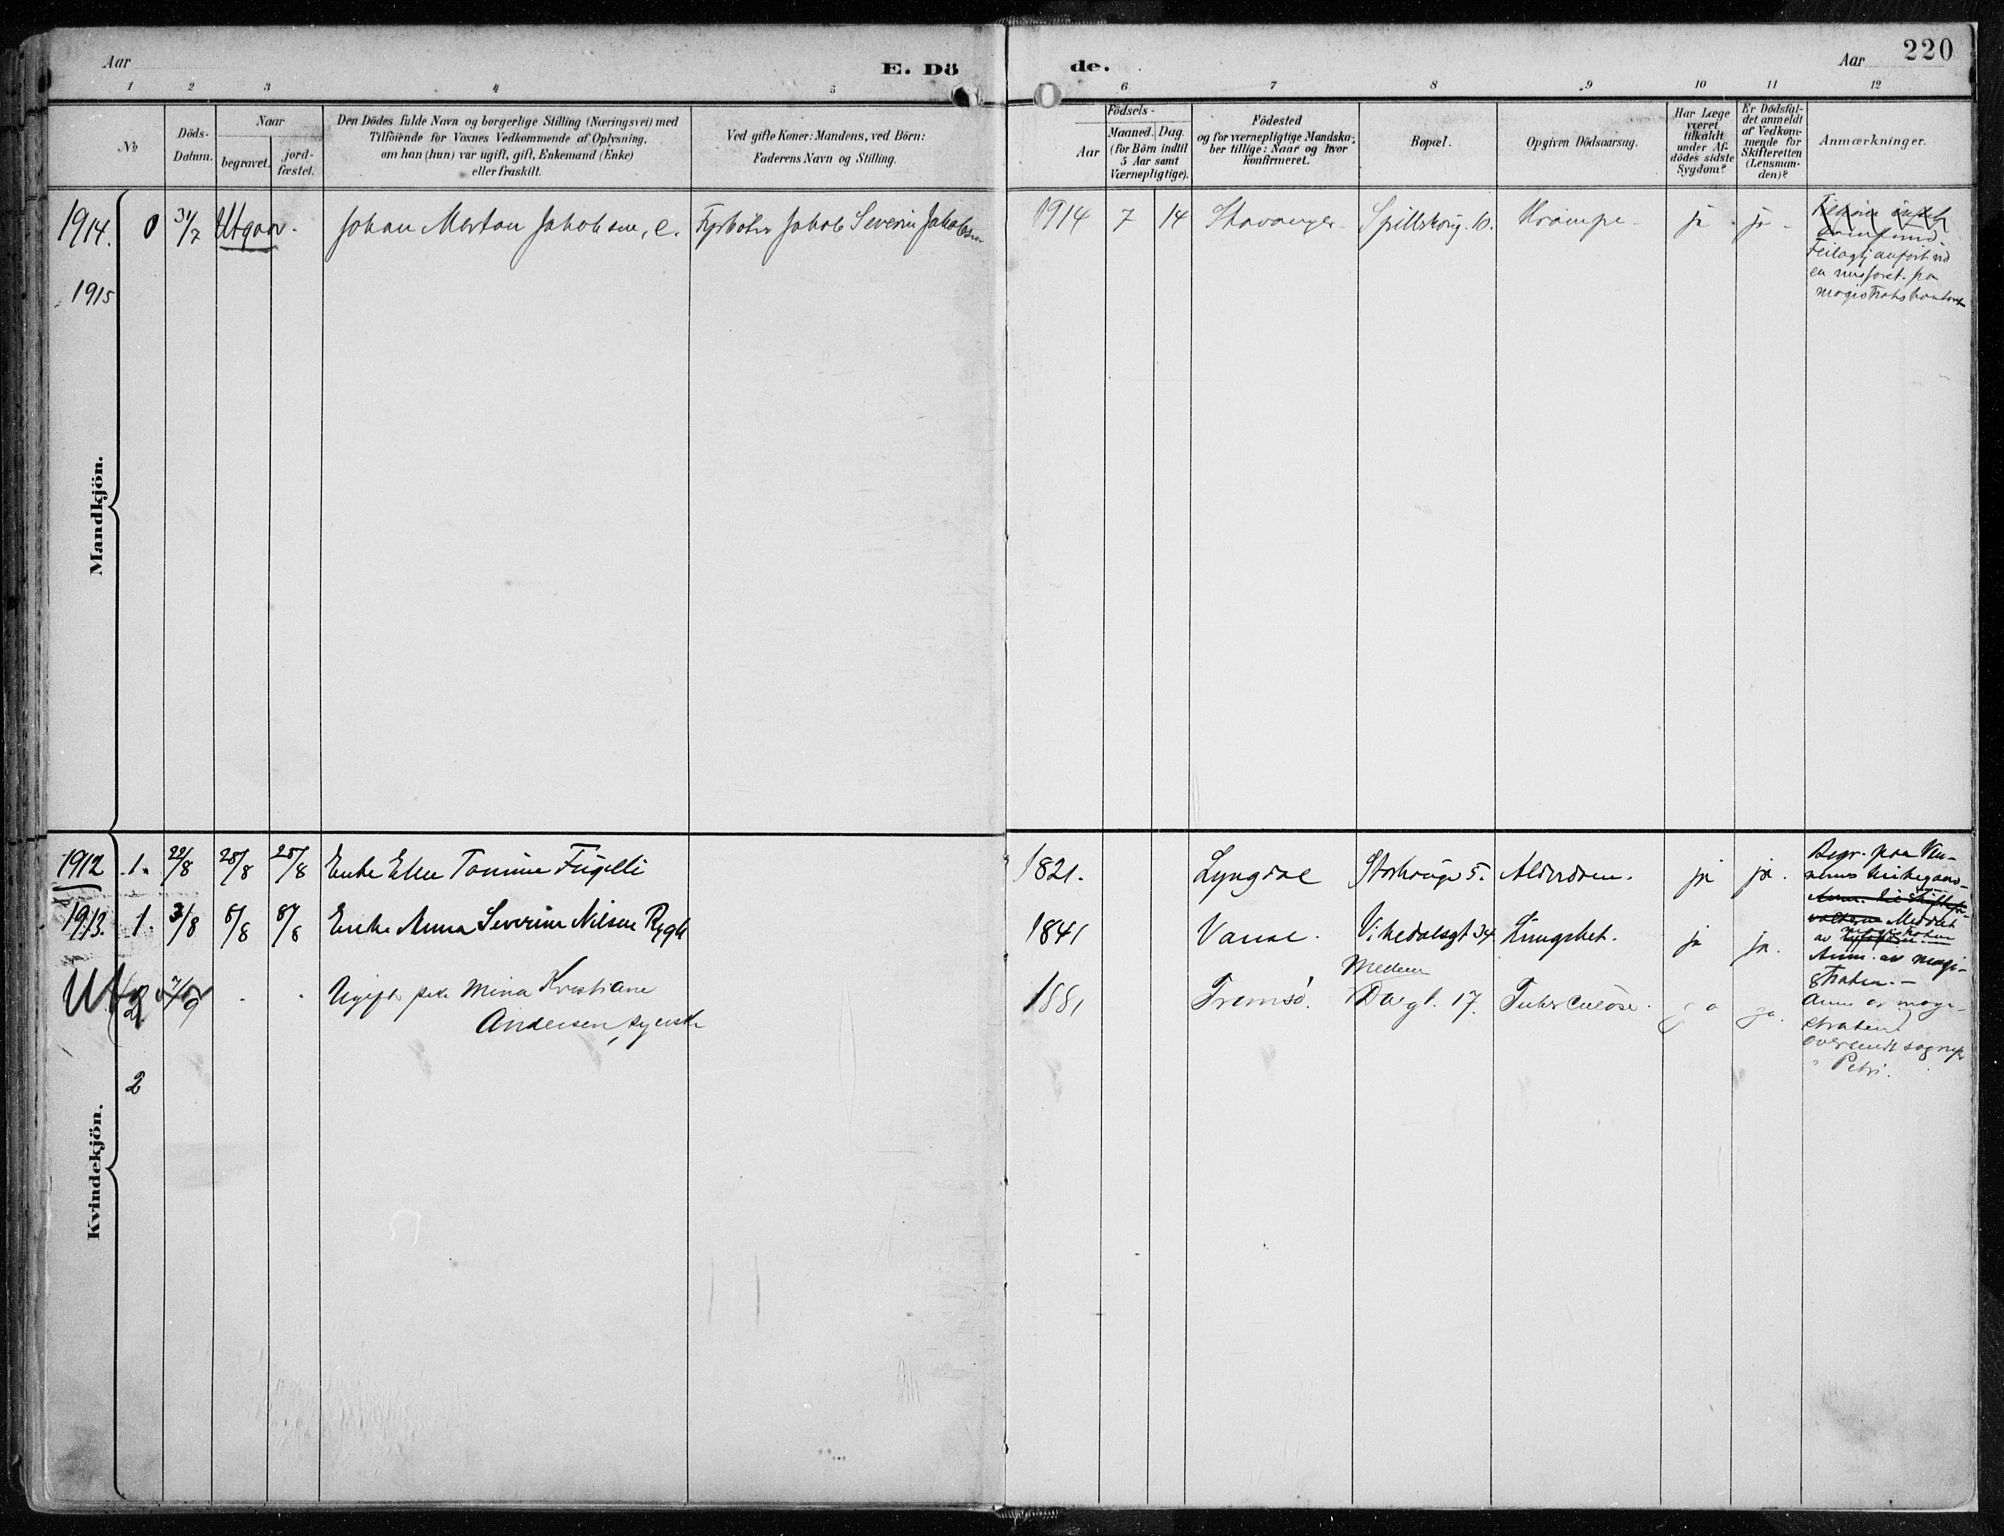 Aar
E. Dö
de.
Aar
220
1 2 3 4 5 6 7 8 9 10 11 12
No
Döds-
Datum.
Naar
begravet.
jord-
fæstet.
Den Dödes fulde Navn og borgerlige Stilling (Næringsvei) med
Tilföiende for Voxnes Vedkommende af Oplysning,
om han (hun) var ugift, gift, Enkemand (Enke)
eller fraskilt.
Ved gifte Koner: Mandens, ved Börn:
Faderens Navn og Stilling.
Födsels-
Aar
Maaned. Dag.
(for Börn indtil
5 Aar samt
Værnepligtige).
Födested
og for værnepligtige Mandska-
ber tillige: Naar og hvor
konfirmeret.
Bopæl.
Opgiven Dödsaarsag.
Har Læge
været
tilkaldt
under Af-
dödes sidste
Sygdom?
Er Dödsfal-
det anmeldt
af Vedkom-
mende for
Skifteretten
(Lensman-
den)?
Anmærkninger.
Mandkjön.
1914. 0 31/7 Utgaar. Johan Morton Jakobsen, e. Fyrbøter Jakob Severin Jakobsen 1914 7 14 Stavanger Spillskrug. 10. Krampe. ja ja.
Feilagtj anført ved
en
magistratskontoret
1915
Kvindekjön.
1912 1. 22/8 28/8 28/8 Enke Ellen Tomine Fugelli 1821. Lyngdal Storhaug 5. Alderdom. ja ja. Begr. paa
1913. 1. 3/8 8/8 8/8 Enke Anna Severine Nilsen Rygh 1841 Vanse. Vikedalsgt 34 Lungebet. ja ja. Meddelt
av
Anm. av magi-
straten.
Utgaar 2 7/9 Ugift pike Mina Kristiane
Andersen, syerske 1881 Tromsø. Dargt. 17. Tuberculose. ja ja. Anm av magi-
straten
oversendt sogneprest
Petri.
2